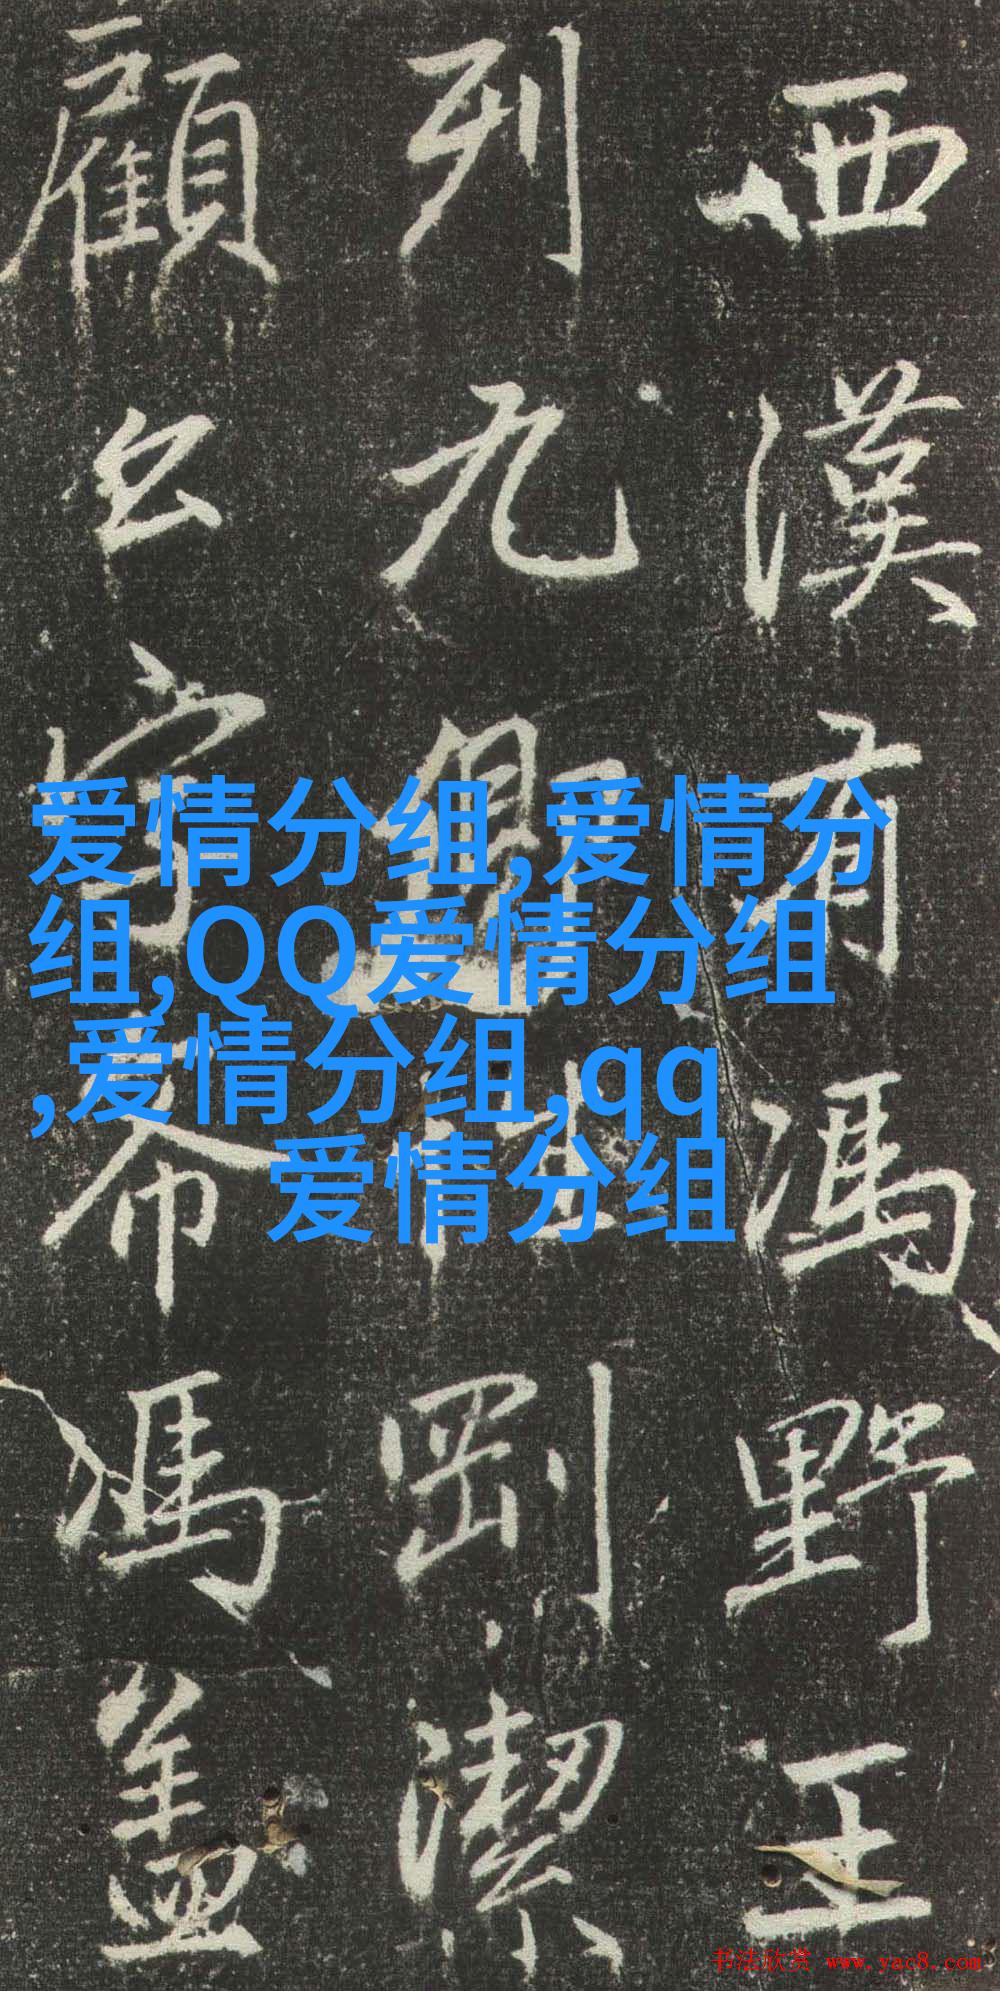 西漢有馮野王
列九卿剛潔
顧公字希馮蓋
爱情分组,爱情分
组,QQ爱情分组
,爱情分组,qq
爱情分组
书法欣赏 www.yac8.com